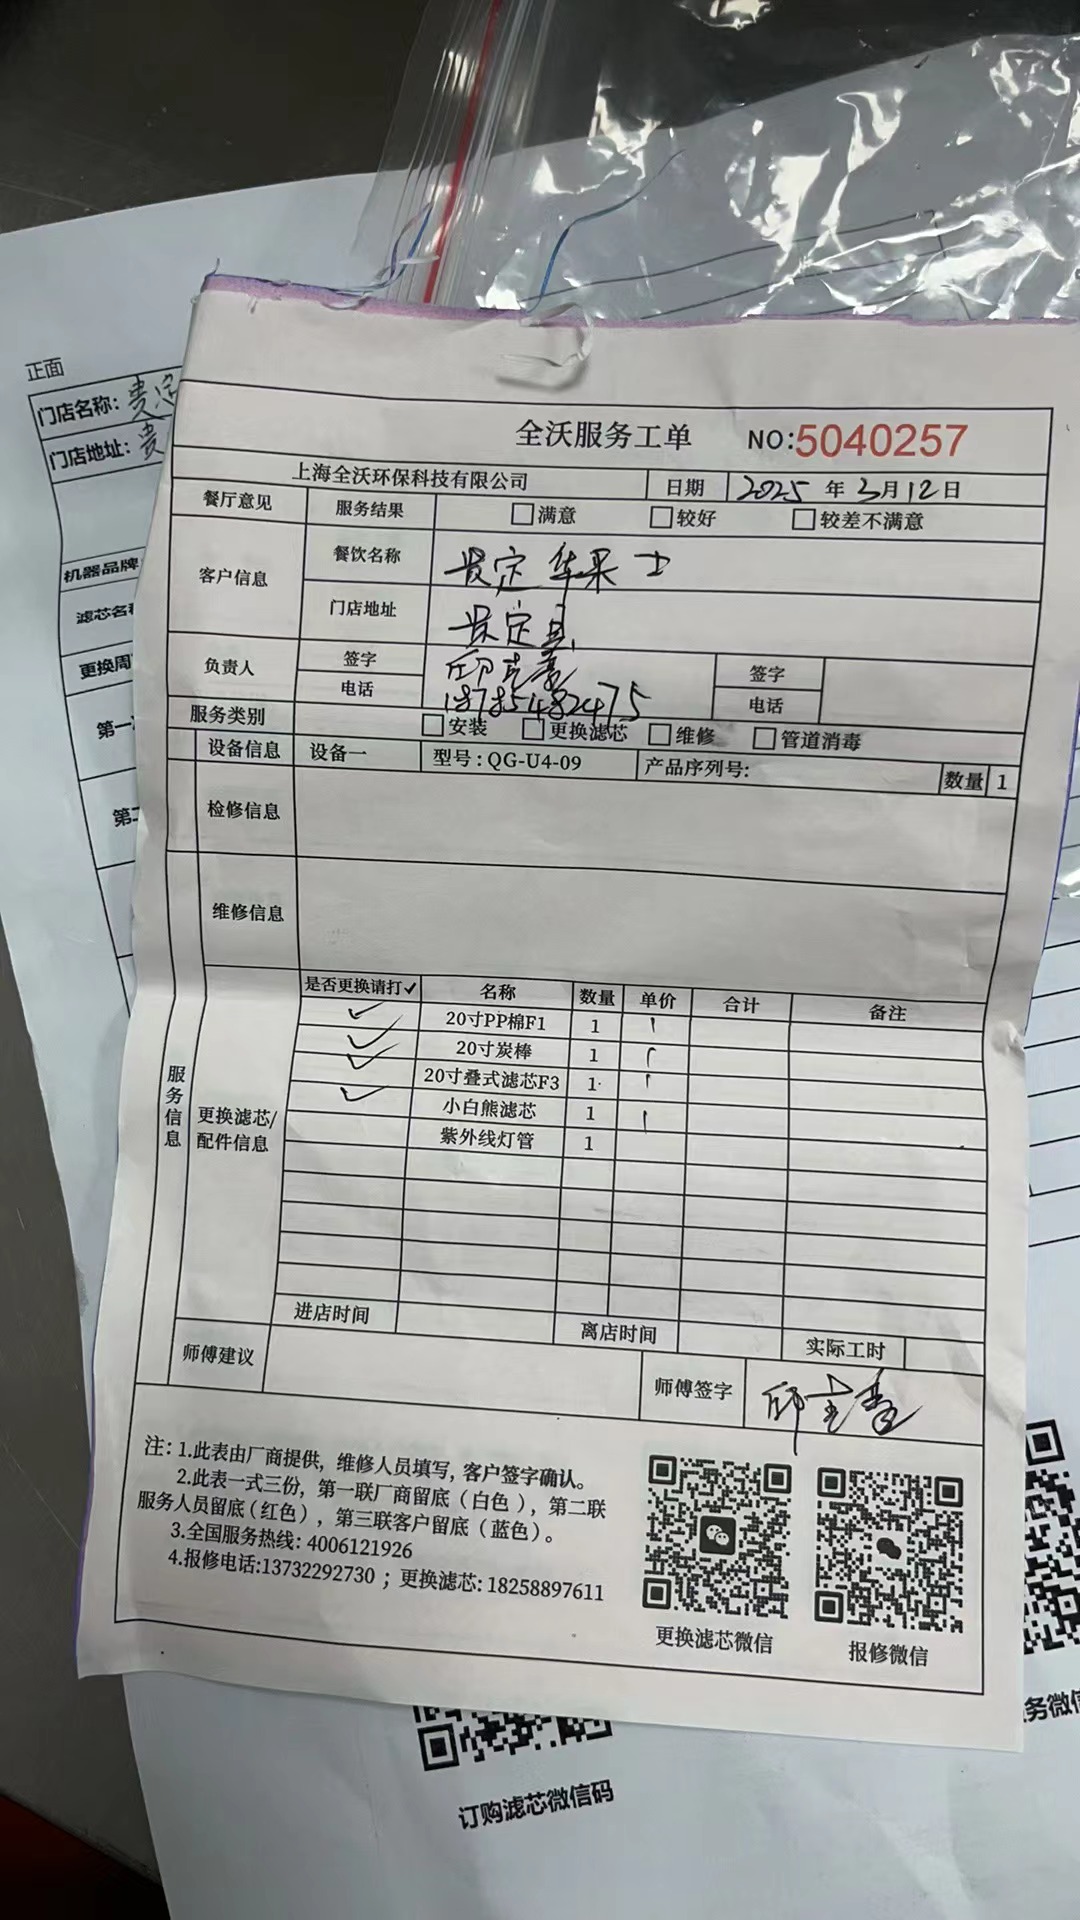 正面
门店名称: 贵定
门店地址: 贵
机器品牌
滤芯名称
更换周
第一
第二
全沃服务工单 NO:5040257
上海全沃环保科技有限公司 日期 2025 年 3月 12日
餐厅意见 服务结果 满意 较好 较差不满意
客户信息 餐饮名称 贵定 华莱士
门店地址 贵定县
负责人 签字 签字
电话 18785482475 电话
服务类别 安装 更换滤芯 维修 管道消毒
设备信息 设备一 型号:QG-U4-09 产品序列号: 数量 1
检修信息
维修信息
服务信息
更换滤芯/
配件信息
是否更换请打✓ 名称 数量 单价 合计 备注
✓ 20寸PP棉F1 1 1
✓ 20寸炭棒 1 1
✓ 20寸叠式滤芯F3 1 1
✓ 小白熊滤芯 1 1
紫外线灯管 1
进店时间 离店时间 实际工时
师傅建议 师傅签字
注: 1.此表由厂商提供, 维修人员填写, 客户签字确认。
2.此表一式三份, 第一联厂商留底(白色), 第二联
服务人员留底(红色), 第三联客户留底(蓝色)。
3.全国服务热线: 4006121926
4.报修电话:13732292730 ; 更换滤芯: 18258897611
更换滤芯微信 报修微信
务微信
订购滤芯微信码